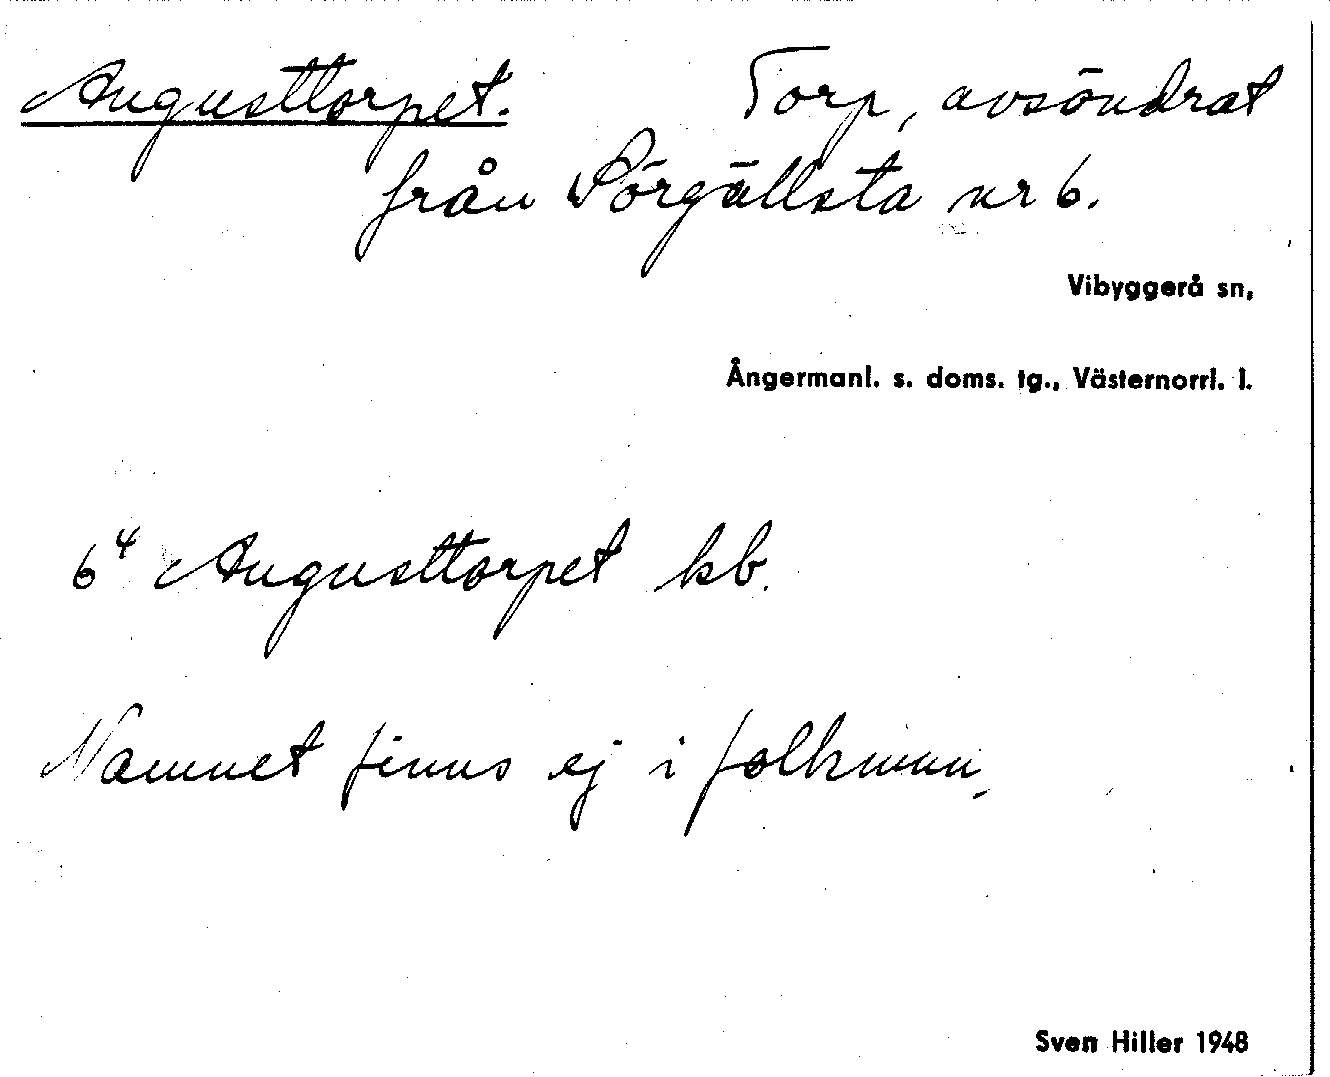 Augusttorpet. Torp, avsöndrat
från Sörgällsta nr 6.
Vibyggerå sn,
Ångermanl. s. doms. tg., Västernorrl. l.
6⁴ Augusttorpet kb.
Namnet finns ej i folkmun.
Sven Hiller 1948